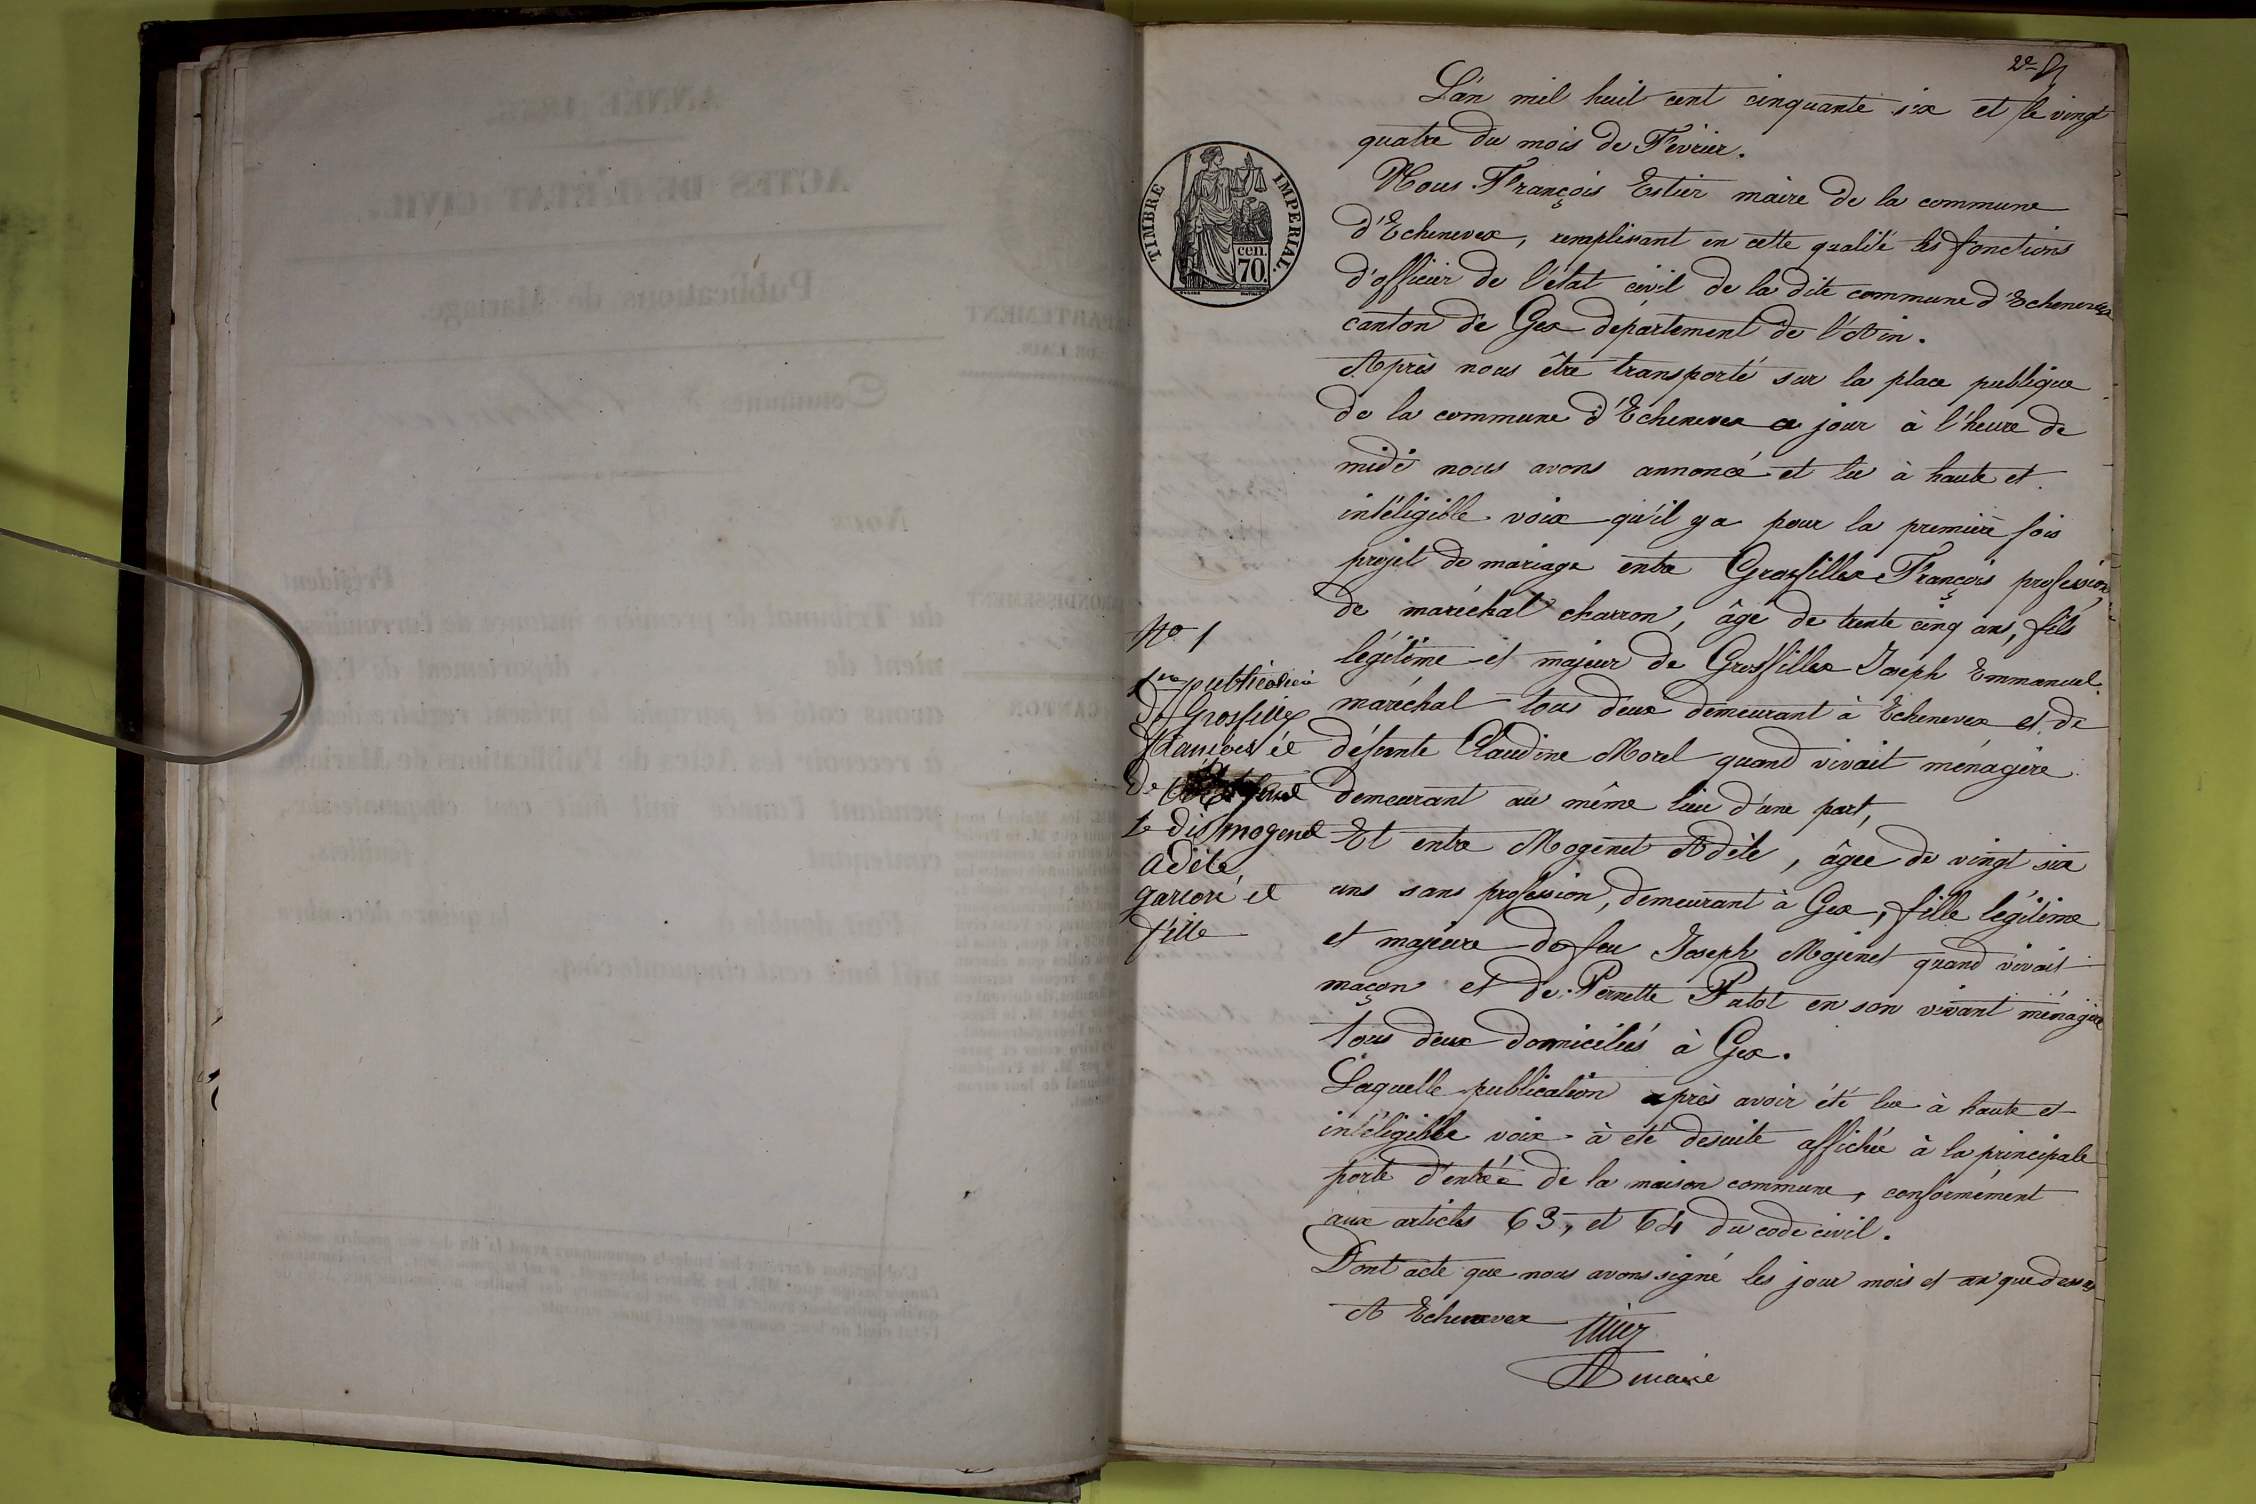 2e fl
L'an mil huit cent cinquante six et le vingt
quatre du mois de Février.
Nous François Estier maire de la commune
d'Echenevex, remplissant en cette qualité les fonctions
d'officier de l'état civil de la dite commune d'Echenevex
canton de Gex département de l'Ain.
Après nous être transporté sur la place publique
de la commune d'Echenevex ce jour à l'heure de
midi nous avons annoncé et lu à haute et
intéligible voix qu'il y a pour la première fois
projet de mariage entre Grosfillex François profession
de maréchal charron, âgé de trente cinq ans, fils
légitime et majeur de Grosfillex Joseph Emmanuel
maréchal tous deux demeurant à Echenevex et de
défunte Claudine Morel quand vivait ménagère
demeurant au même lieu d'une part,
Et entre Mogenet Adèle, âgée de vingt six
ans sans profession, demeurant à Gex, fille légitime
et majeure de feu Joseph Mojenet quand vivait
maçon et de Pernette Patot en son vivant ménagère
tous deux domiciliés à Gex.
Laquelle publication après avoir été lue à haute et
intéligible voix à été desuite affichée à la principale
porte d'entrée de la maison commune, conformément
aux articles 63, et 64 du code civil.
Dont acte que nous avons signé les jour mois et an que dessus
A Echenevex
maire
TIMBRE IMPERIAL.
cen.
70.
No 1
1re publication
de Grosfillex
François et
de
Mogenet
Adèle
garcon et
fille
ANNÉE
ACTES DE L'ÉTAT CIVIL.
Publications de Mariage
DÉPARTEMENT
DE L'AIN.
Commune
Nous
Président
du Tribunal de première instance de l'arrondisse-
ment de , département de l'Ain
avons coté et paraphé le présent registre destiné
à recevoir les Actes de Publications de Mariage
pendant l'année mil huit cent cinquante-six,
contenant feuillets.
Fait double à le quinze décembre
mil huit cent cinquante-cinq.
ARRONDISSEMENT
CANTON